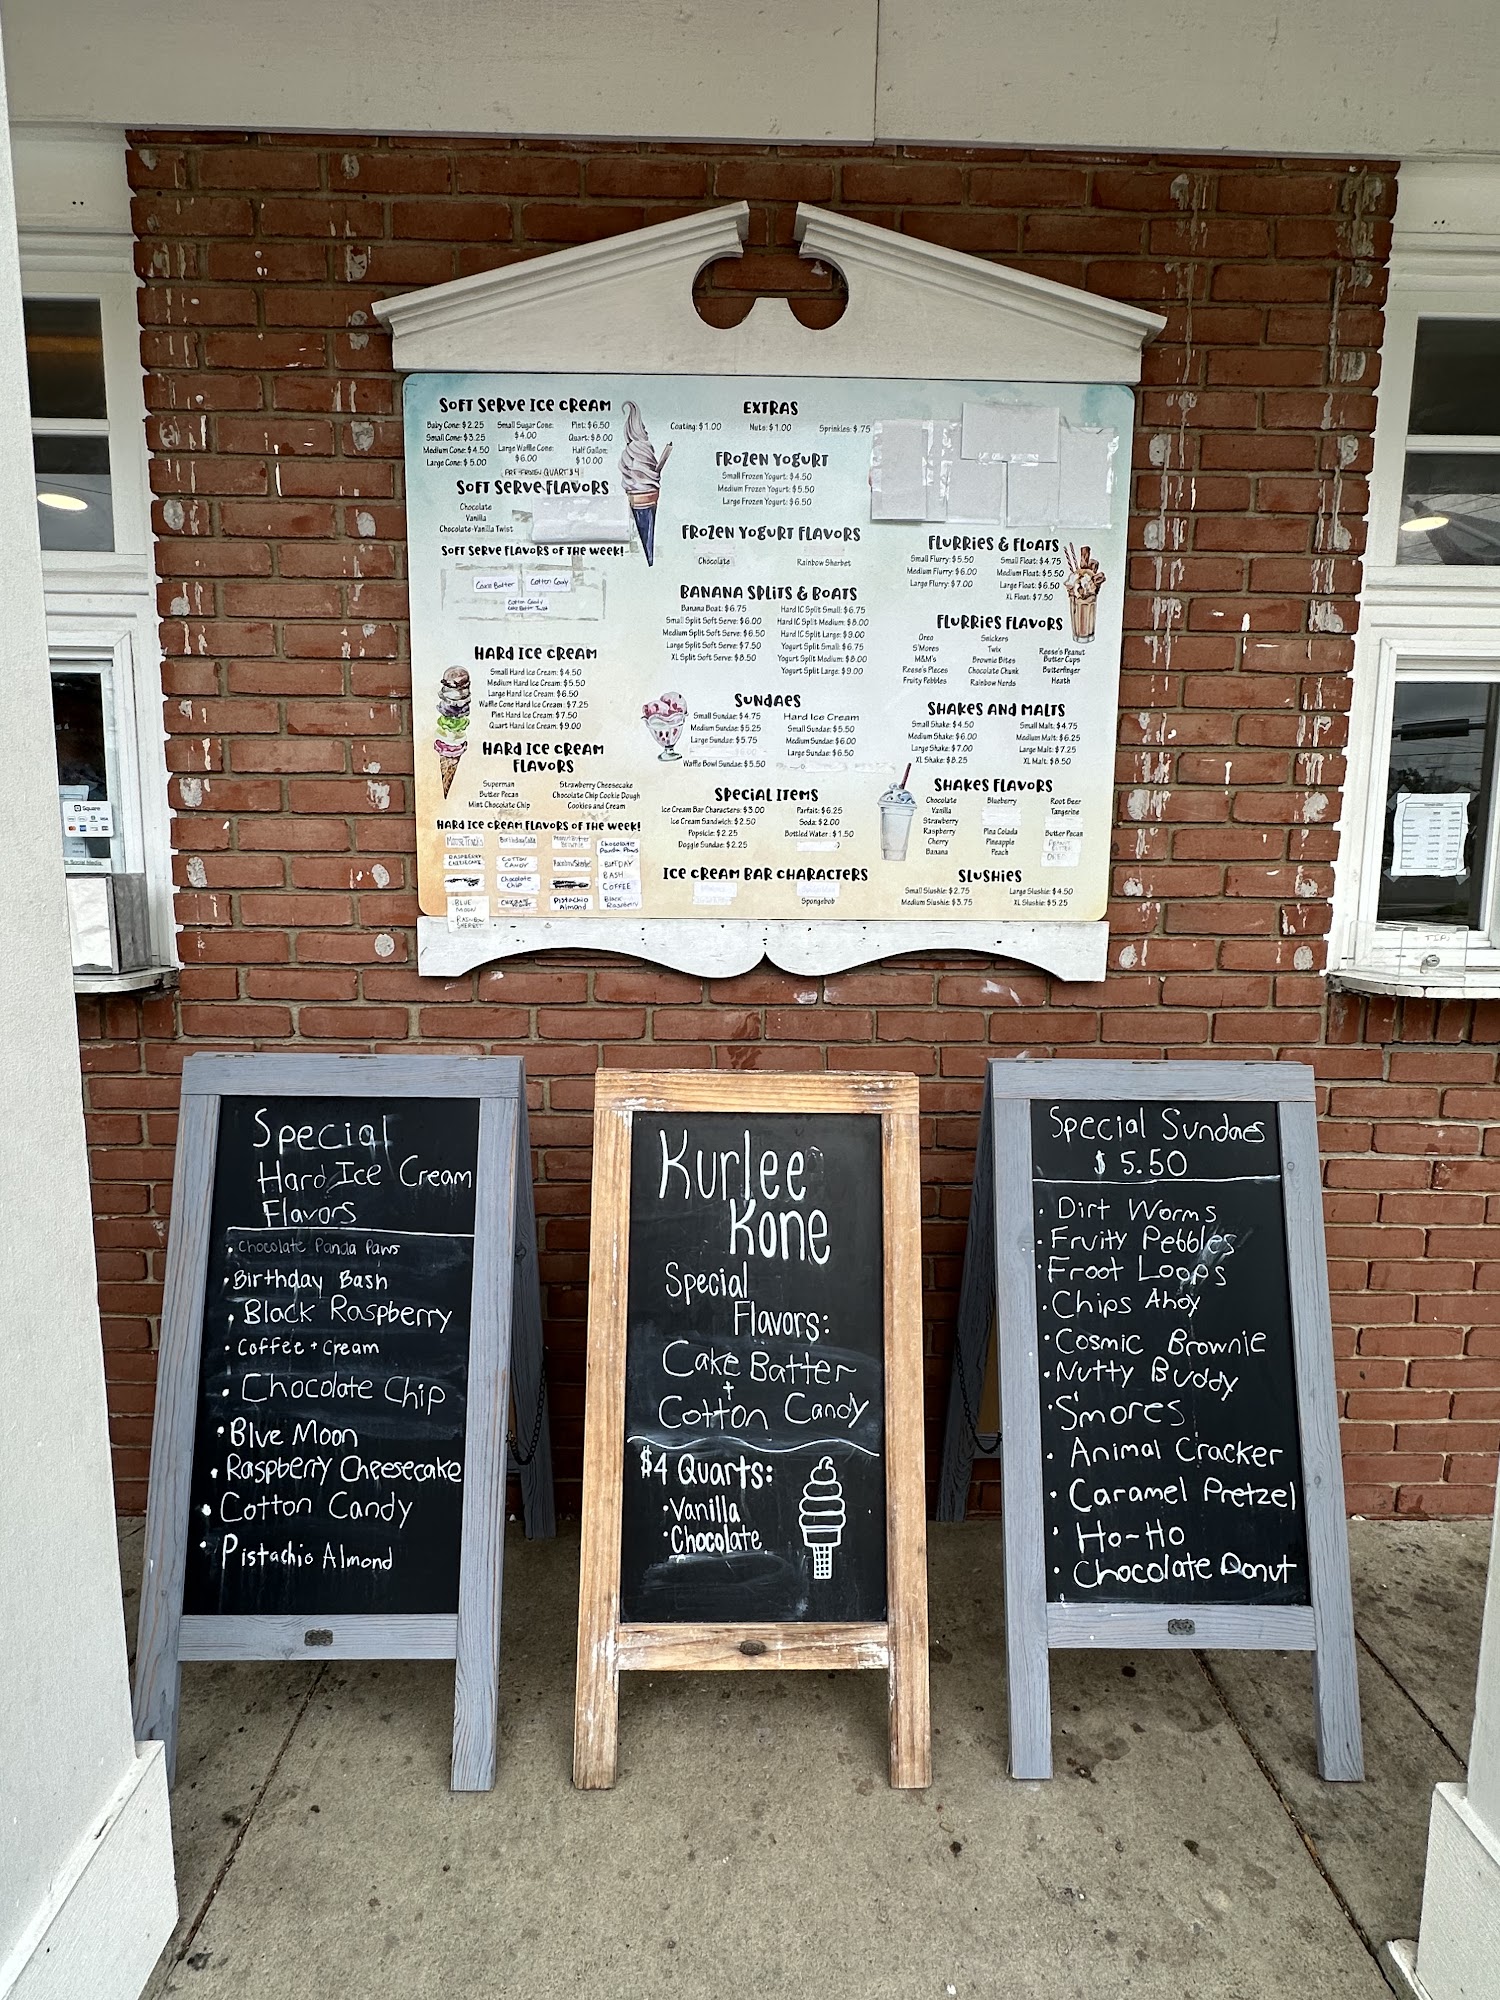 Soft Serve Ice Cream
Baby Cone: $2.25
Small Cone: $3.25
Medium Cone: $4.50
Large Cone: $5.00
Small Sugar Cone:
$4.00
Large Waffle Cone:
$6.00
Pint: $6.50
Quart: $8.00
Half Gallon:
$10.00
PRE-FROZEN QUART $4
Soft Serve Flavors
Chocolate
Vanilla
Chocolate-Vanilla Twist
Soft Serve Flavors of the Week!
Cake Batter
Cotton Candy
Cotton Candy
Cake Batter Twist
Hard Ice Cream
Small Hard Ice Cream: $4.50
Medium Hard Ice Cream: $5.50
Large Hard Ice Cream: $6.50
Waffle Cone Hard Ice Cream: $7.25
Pint Hard Ice Cream: $7.50
Quart Hard Ice Cream: $9.00
Hard Ice Cream
Flavors
Superman
Butter Pecan
Mint Chocolate Chip
Strawberry Cheesecake
Chocolate Chip Cookie Dough
Cookies and Cream
Hard Ice Cream Flavors of the Week!
Moose Tracks
RASPBERRY
CHEESECAKE
BLUE
MOON
RAINBOW
SHERBET
COTTON
CANDY
Chocolate
Chip
Pistachio
Almond
Chocolate
Panda Paws
BIRTHDAY
BASH
COFFEE
Black
Raspberry
Extras
Coating: $1.00
Nuts: $1.00
Sprinkles: $.75
Frozen Yogurt
Small Frozen Yogurt: $4.50
Medium Frozen Yogurt: $5.50
Large Frozen Yogurt: $6.50
Frozen Yogurt Flavors
Chocolate
Rainbow Sherbet
Banana Splits & Boats
Banana Boat: $6.75
Small Split Soft Serve: $6.00
Medium Split Soft Serve: $6.50
Large Split Soft Serve: $7.50
XL Split Soft Serve: $8.50
Hard IC Split Small: $6.75
Hard IC Split Medium: $8.00
Hard IC Split Large: $9.00
Yogurt Split Small: $6.75
Yogurt Split Medium: $8.00
Yogurt Split Large: $9.00
Sundaes
Small Sundae: $4.75
Medium Sundae: $5.25
Large Sundae: $5.75
Waffle Bowl Sundae: $5.50
Hard Ice Cream
Small Sundae: $5.50
Medium Sundae: $6.00
Large Sundae: $6.50
Special Items
Ice Cream Bar Characters: $3.00
Ice Cream Sandwich: $2.50
Popsicle: $2.25
Doggie Sundae: $2.25
Parfait: $6.25
Soda: $2.00
Bottled Water: $1.50
Ice Cream Bar Characters
Spongebob
Flurries & Floats
Small Flurry: $5.50
Medium Flurry: $6.00
Large Flurry: $7.00
Small Float: $4.75
Medium Float: $5.50
Large Float: $6.50
XL Float: $7.50
Flurries Flavors
Oreo
S'Mores
M&M's
Reese's Pieces
Fruity Pebbles
Snickers
Twix
Brownie Bites
Chocolate Chunk
Rainbow Nerds
Reese's Peanut
Butter Cups
Butterfinger
Heath
Shakes and Malts
Small Shake: $4.50
Medium Shake: $6.00
Large Shake: $7.00
XL Shake: $8.25
Small Malt: $4.75
Medium Malt: $6.25
Large Malt: $7.25
XL Malt: $8.50
Shakes Flavors
Chocolate
Vanilla
Strawberry
Raspberry
Cherry
Banana
Blueberry
Pina Colada
Pineapple
Peach
Root Beer
Tangerine
Butter Pecan
PEANUT
BUTTER
OREO
Slushies
Small Slushie: $2.75
Medium Slushie: $3.75
Large Slushie: $4.50
XL Slushie: $5.25
Square
VISA
TIPS
Special
Hard Ice Cream
Flavors
• Chocolate Panda Paws
• Birthday Bash
• Black Raspberry
• Coffee + Cream
• Chocolate Chip
• Blue Moon
• Raspberry Cheesecake
• Cotton Candy
• Pistachio Almond
Kurlee
Kone
Special
Flavors:
Cake Batter
+
Cotton Candy
$4 Quarts:
• Vanilla
• Chocolate
Special Sundaes
$5.50
• Dirt Worms
• Fruity Pebbles
• Froot Loops
• Chips Ahoy
• Cosmic Brownie
• Nutty Buddy
• S'mores
• Animal Cracker
• Caramel Pretzel
• Ho-Ho
• Chocolate Donut